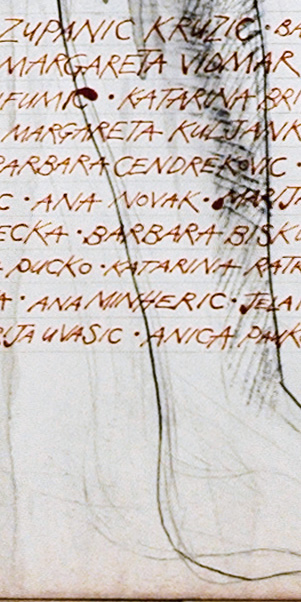 ZUPANIC KRUZIC · BA
MARGARETA VIDMAR
IFUMIC · KATARINA BRI
MARGARETA KULJANK
BARBARA CENDREKOVIC ·
C · ANA NOVAK · MARIJA
ECKA · BARBARA BISKU
PUCKO · KATARINA RATK
A · ANA MINHERIC · JELA
RIJA UVASIC · ANICA PAVK